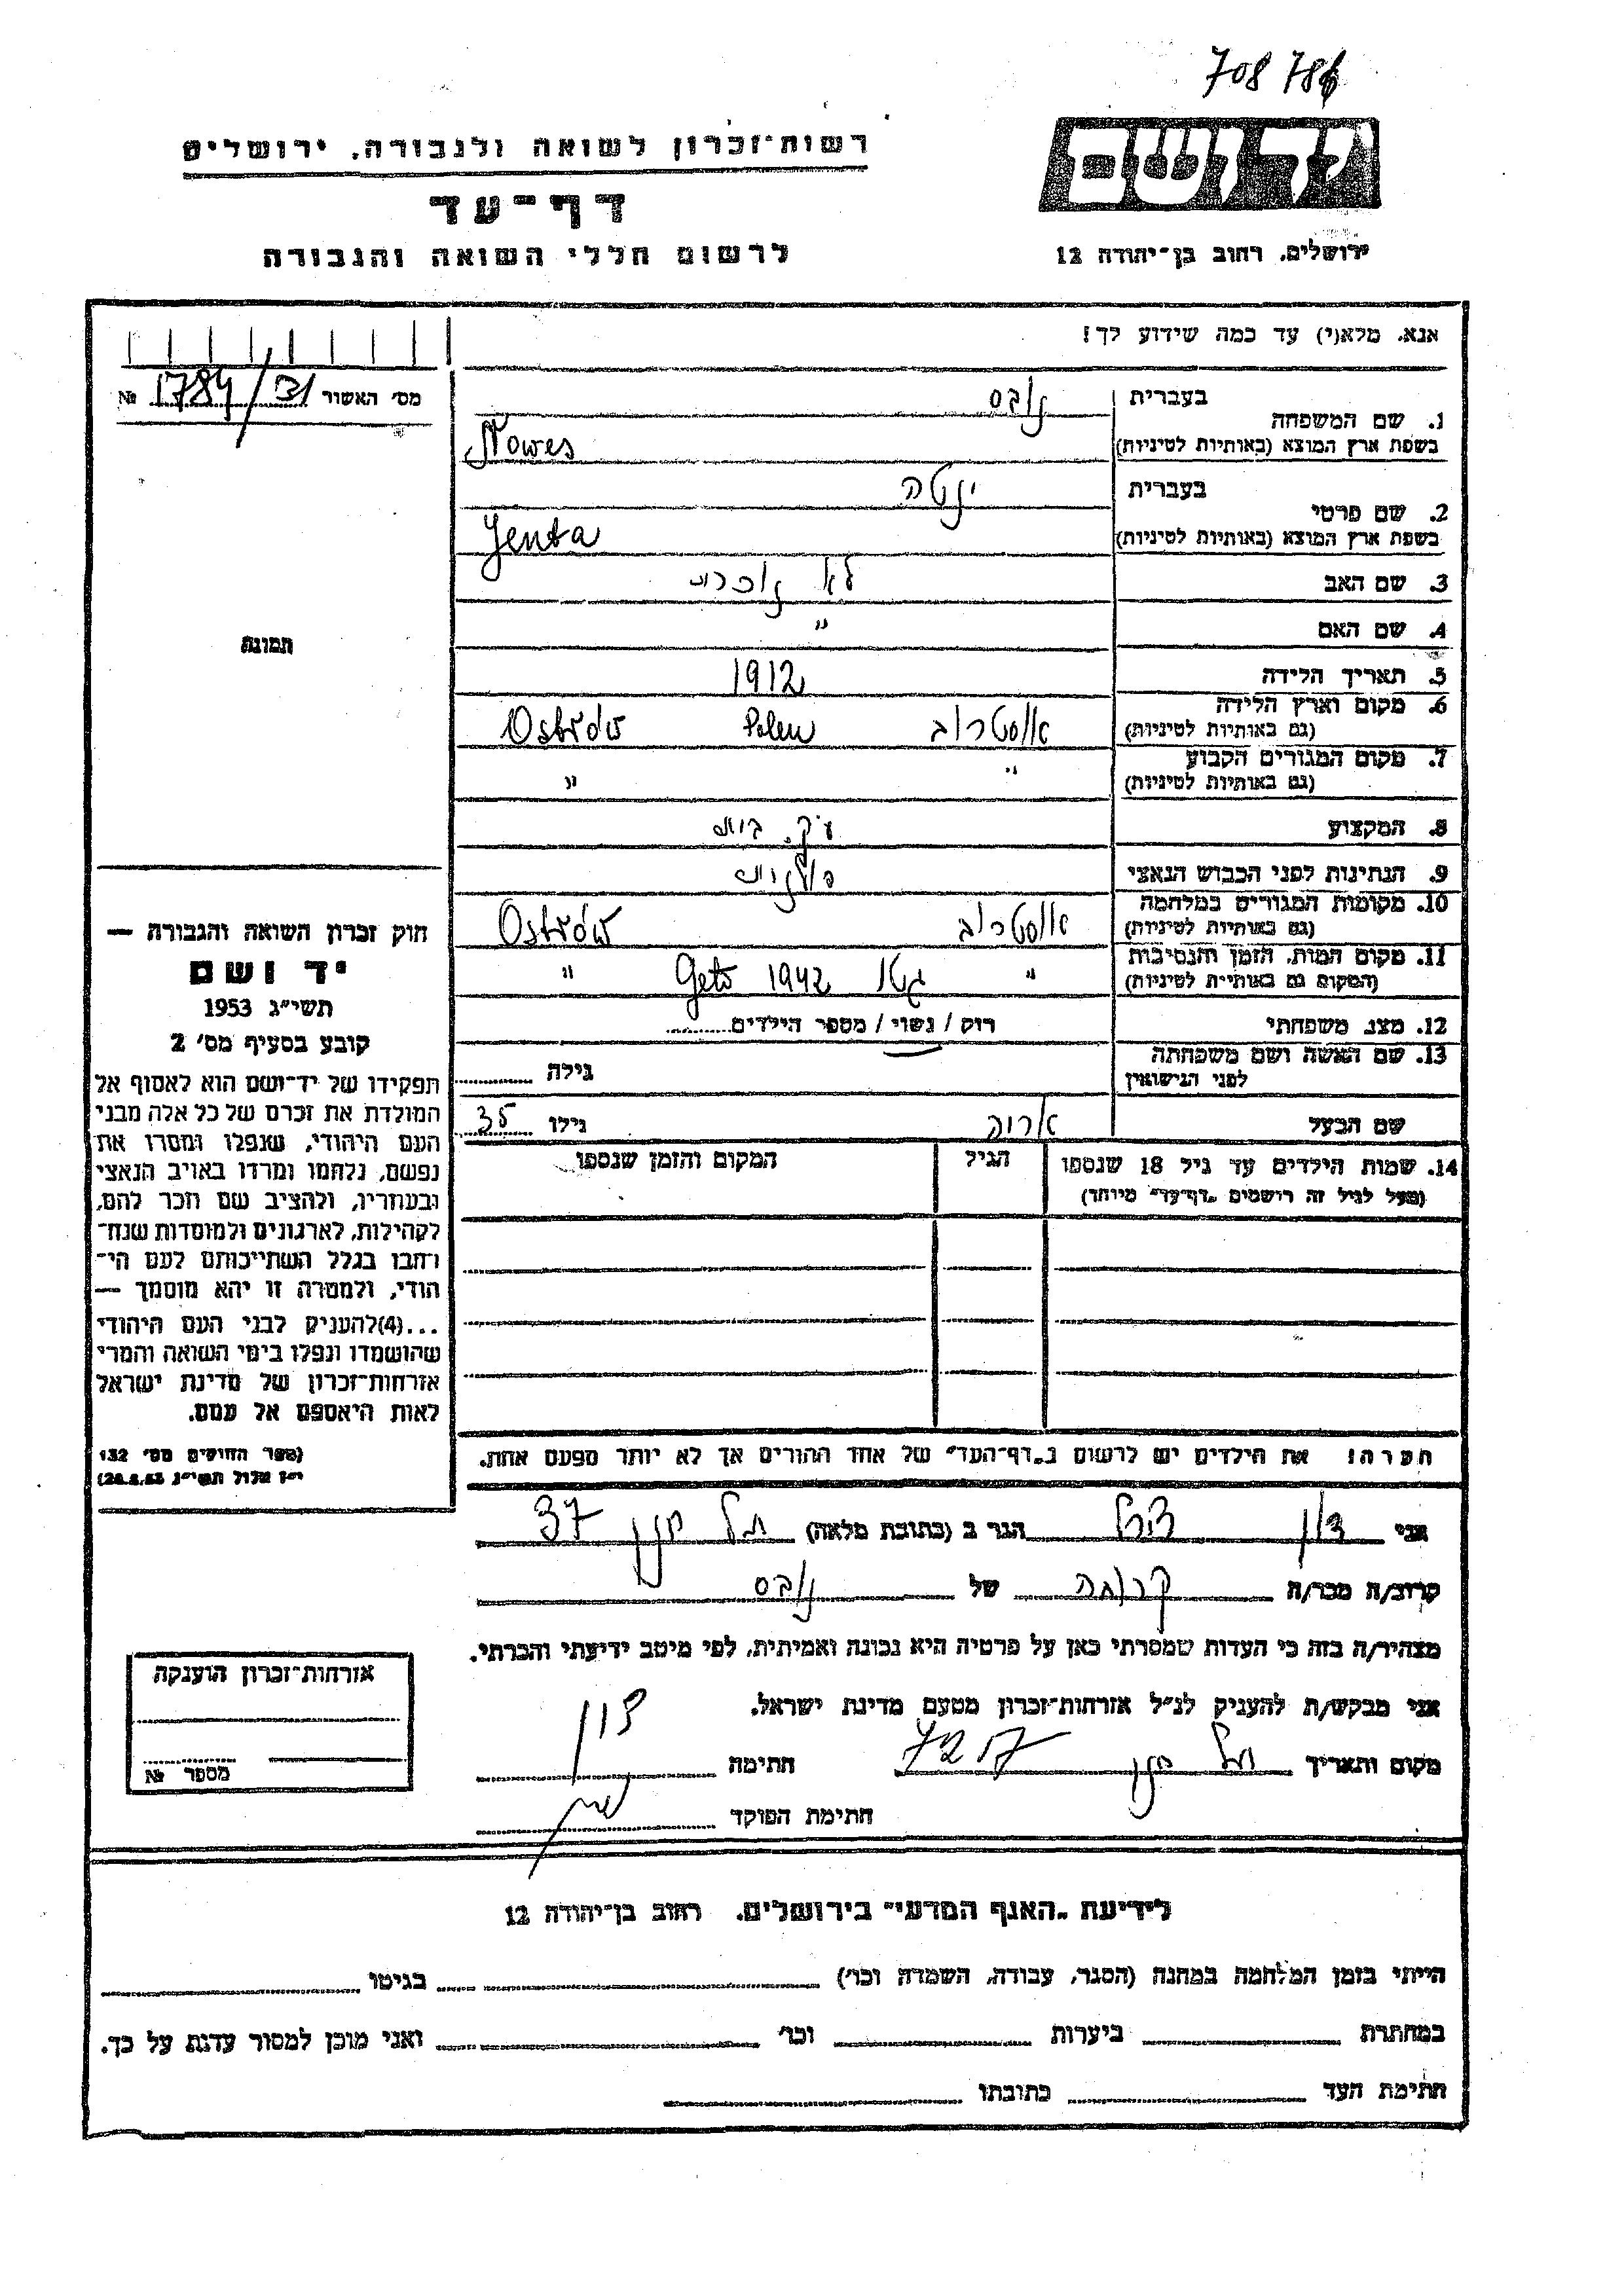 708 786
רשות־זכרון לשואה ולגבורה, ירושלים
יד ושם
דף־עד
לרשום חללי השואה והגבורה
ירושלים, רחוב בן־יהודה 12
אנא, מלא(י) עד כמה שידוע לך!
מס׳ האשור 1784/31 №
בעברית
1. שם המשפחה
נובס
בשפת ארץ המוצא (באותיות לטיניות) Nowes
בעברית
2. שם פרטי
ינטה
בשפת ארץ המוצא (באותיות לטיניות) Jenta
3. שם האב לא נזכרת
4. שם האם "
תמונה
5. תאריך הלידה 1912
6. מקום וארץ הלידה
(גם באותיות לטיניות)
אוסטרוב Polen Ostrów
7. מקום המגורים הקבוע
(גם באותיות לטיניות)
" "
8. המקצוע עק. בית
9. הנתינות לפני הכבוש הנאצי פולנית
10. מקומות המגורים במלחמה
(גם באותיות לטיניות)
אוסטרוב Ostrów
11. מקום המות, הזמן והנסיבות
(המקום גם באותיות לטיניות)
" גטו 1942 Geto "
12. מצב משפחתי רוק / נשוי / מספר הילדים
13. שם האשה ושם משפחתה
לפני הנישואין
גילה
שם הבעל גילו 35
14. שמות הילדים עד גיל 18 שנספו
(מעל לגיל זה רושמים „דף־עד״ מיוחד)
הגיל
המקום והזמן שנספו
חוק זכרון השואה והגבורה —
יד ושם
תשי״ג 1953
קובע בסעיף מס׳ 2
תפקידו של יד־ושם הוא לאסוף אל
המולדת את זכרם של כל אלה מבני
העם היהודי, שנפלו ומסרו את
נפשם, נלחמו ומרדו באויב הנאצי
ובעוזריו, ולהציב שם וזכר להם,
לקהילות, לארגונים ולמוסדות שנח־
רבו בגלל השתייכותם לעם הי־
הודי, ולמטרה זו יהא מוסמך —
...(4)להעניק לבני העם היהודי
שהושמדו ונפלו בימי השואה והמרי
אזרחות־זכרון של מדינת ישראל
לאות היאספם אל עמם.
(ספר החוקים מס׳ 132
י״ז אלול תשי״ג 28.8.53)
הערה! את הילדים יש לרשום ב„דף־העד״ של אחד ההורים אך לא יותר מפעם אחת.
אני הגר ב (כתובת מלאה) 37
קרוב/ה מכר/ה קרובה של נובס
מצהיר/ה בזה כי העדות שמסרתי כאן על פרטיה היא נכונה ואמיתית, לפי מיטב ידיעתי והכרתי.
אני מבקש/ת להעניק לנ״ל אזרחות־זכרון מטעם מדינת ישראל.
מקום ותאריך חתימה
חתימת הפוקד
אזרחות־זכרון הוענקה
מספר №
לידיעת „האגף המדעי״ בירושלים, רחוב בן־יהודה 12
הייתי בזמן המלחמה במחנה (הסגר, עבודה, השמדה וכר׳) בגיטו
במחתרת ביערות וכר׳ ואני מוכן למסור עדות על כך.
חתימת העד כתובתו